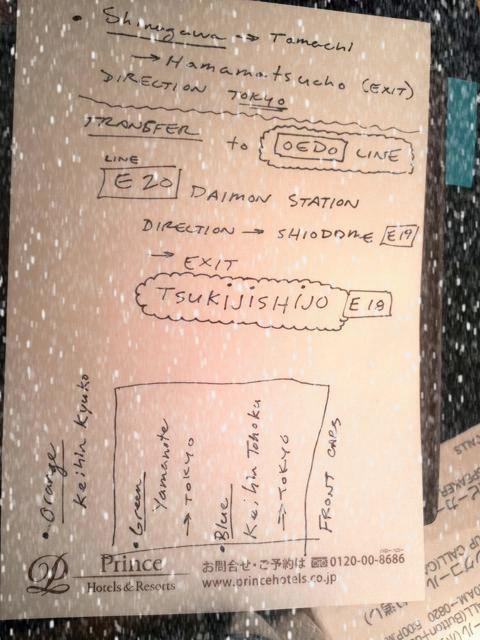 • Shinugawa → Tamachi
→ Hamamatsucho (EXIT)
DIRECTION TOKYO
TRANSFER to OEDO LINE
LINE
E 20 DAIMON STATION
DIRECTION → SHIODOME E19
→ EXIT
TSUKIJISHIJO E 18
• Orange
Keihin Kyuko
• Green
Yamanote
→ TOKYO
• Blue
Keihin Tohoku
→ TOKYO
FRONT CARS
Prince
Hotels & Resorts
お問合せ・ご予約は 0120-00-8686
www.princehotels.co.jp